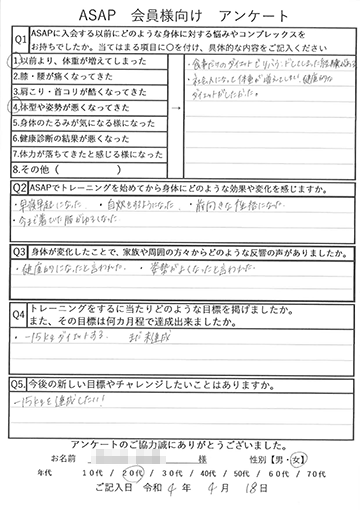 ASAP 会員様向け アンケート
Q1 ASAPに入会する以前にどのような身体に対する悩みやコンプレックスを
お持ちでしたか。当てはまる項目に〇を付け、具体的な内容をご記入ください
1.以前より、体重が増えてしまった
2.膝・腰が痛くなってきた
3.肩こり・首コリが酷くなってきた
4.体型や姿勢が悪くなってきた
5.身体のたるみが気になる様になった
6.健康診断の結果が悪くなった
7.体力が落ちてきたと感じる様になった
8.その他（ ）
・食事だけのダイエットでリバウンドしてしまった
・社会人になって体重が増えてしまい、健康的な
ダイエットがしたかった。
Q2 ASAPでトレーニングを始めてから身体にどのような効果や変化を感じますか。
・早寝早起になった ・自炊をするようになった ・前向きな性格になった
・今まで着てた服がゆるくなった
Q3 身体が変化したことで、家族や周囲の方々からどのような反響の声がありましたか。
・健康的になったと言われた ・姿勢がよくなったと言われた
Q4 トレーニングをするに当たりどのような目標を掲げましたか。
また、その目標は何カ月程で達成出来ました。
・-15kgダイエットする まだ未達成
Q5.今後の新しい目標やチャレンジしたいことはありますか。
-15kgを達成したい!
アンケートのご協力誠にありがとうございました。
お名前 様 性別【男・女】
年代 10代／20代／30代／40代／50代／60代／70代
ご記入日 令和 4 年 4 月 18 日